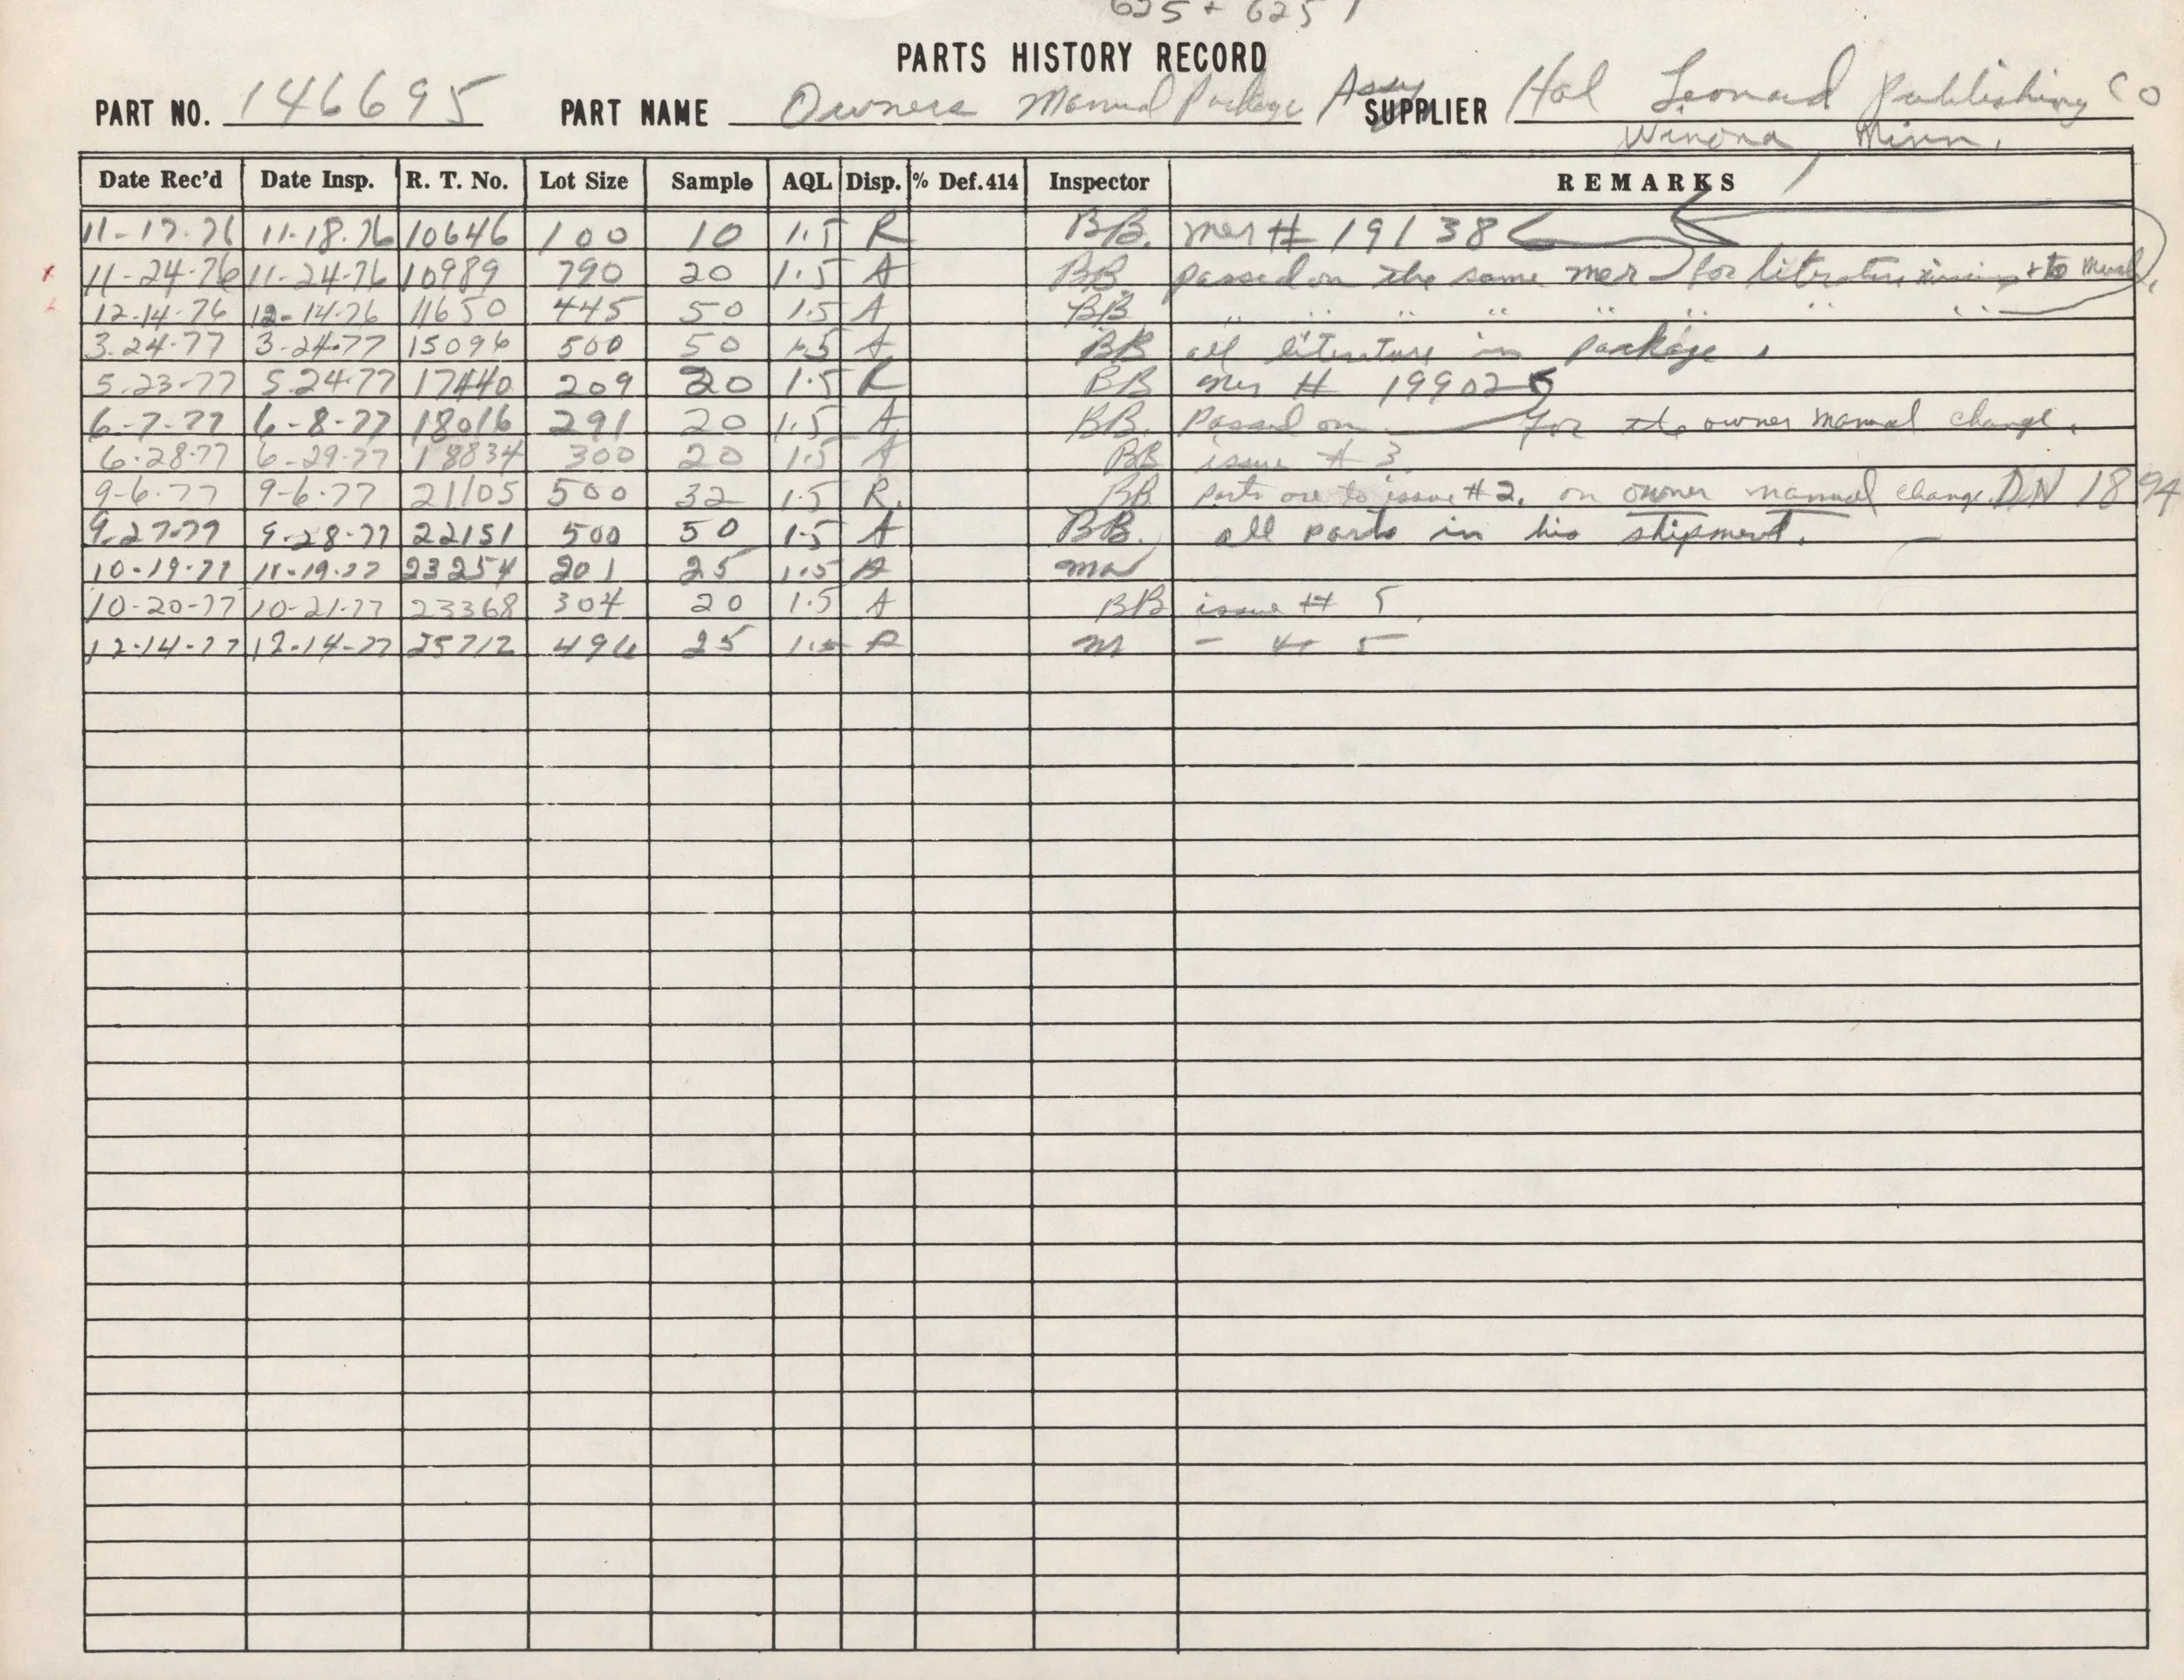 625 + 625 1
PARTS HISTORY RECORD
PART NO. 146695 PART NAME Owners Manual Package Assy SUPPLIER Hal Leonard Publishing Co
Winona, Minn.
Date Rec'd Date Insp. R. T. No. Lot Size Sample AQL Disp. % Def.414 Inspector REMARKS
11-17-76 11-18-76 10646 100 10 1.5 R BB. mer # 19138
11-24-76 11-24-76 10989 790 20 1.5 A BB. passed on the same mer for literature missing + to
12-14-76 12-14-76 11650 445 50 1.5 A BB " " " " " " " "
3-24-77 3-24-77 15096 500 50 1.5 A BB all literature in package.
5-23-77 5-24-77 17440 209 20 1.5 R BB mer # 19902
6-7-77 6-8-77 18016 291 20 1.5 A BB. Passed on for the owner manual change.
6-28-77 6-29-77 18834 300 20 1.5 A BB issue # 3.
9-6-77 9-6-77 21105 500 32 1.5 R. BB parts are to issue # 2. on owner manual change. DN 1894
9-27-77 9-28-77 22151 500 50 1.5 A BB. all parts in his shipment.
10-19-77 11-19-77 23254 201 25 1.5 A
10-20-77 10-21-77 23368 304 20 1.5 A BB issue # 5.
12-14-77 12-14-77 25712 496 25 1.5 A m - # 5